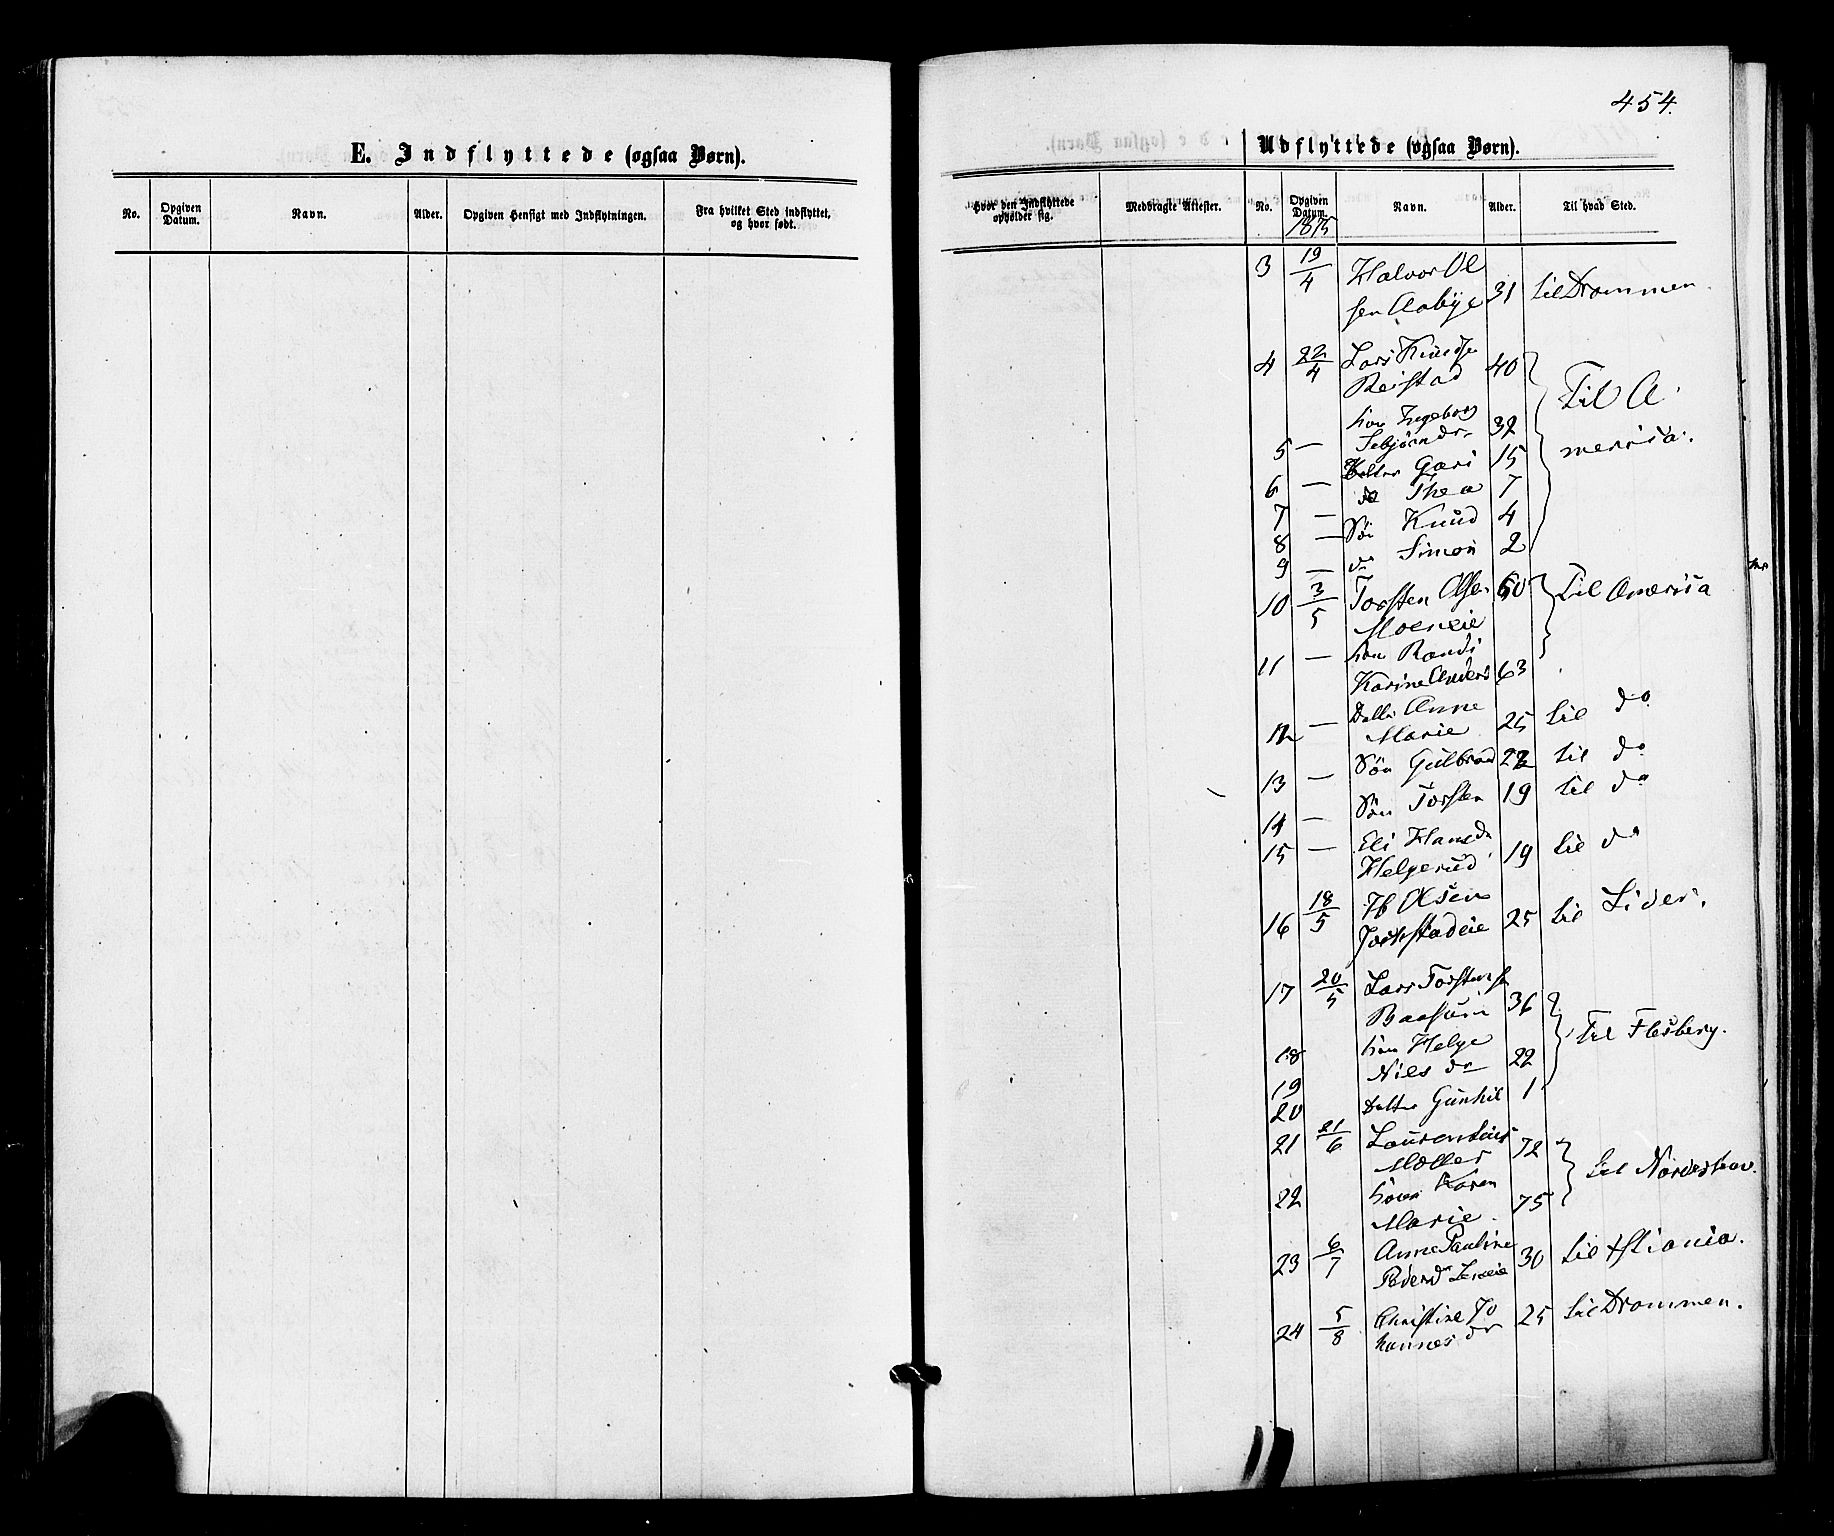 454.
E. Indflyttede (ogsaa Børn).
No. Opgiven Datum. Navn. Alder. Opgiven Hensigt med Indflytningen. Fra hvilket Sted indflyttet, og hvor født.
Udflyttede (ogsaa Børn).
Hvor den Indflyttede opholder sig. Medbragte Attester. No. Opgiven Datum. Navn. Alder. Til hvad Sted.
1875
3 19/4 Halvor Ol
sen Aabye 31 til Drammen.
4 22/4 Lars Knudsn
Reistad 40 Til A
hon Ingeborg
5 — Sebjørndr 32 merica.
Datter Gari 15
6 — do Thea 7
7 — Søn Knud 4
8 — do Simon 2
9 —
10 3/5 Torsten Olsen 60 Til America
Moeneie
11 — hon Randi
Karine Anders 63
12 — Datt Anne
Marie 25 til do
13 — Søn Gulbrand 22 til do
14 — Søn Torsten 19 til do
15 — Eli Hansdr
Helgerud 19 til do
16 18/5 Olsen
25 til Lider.
17 20/5 Lars Torstens
Baasum 36
18 hon Helge
Niels dr 22 Til Flesberg.
19
20 Datter Gunhil 1
21 21/6 Laurentius
Møller 72
22 hon Karen
Marie 75
23 6/7 Anne Pauline
Pedersdr 30 til Xstiania.
24 5/8 Christine Jo
hannes dr 25 til Drammen.